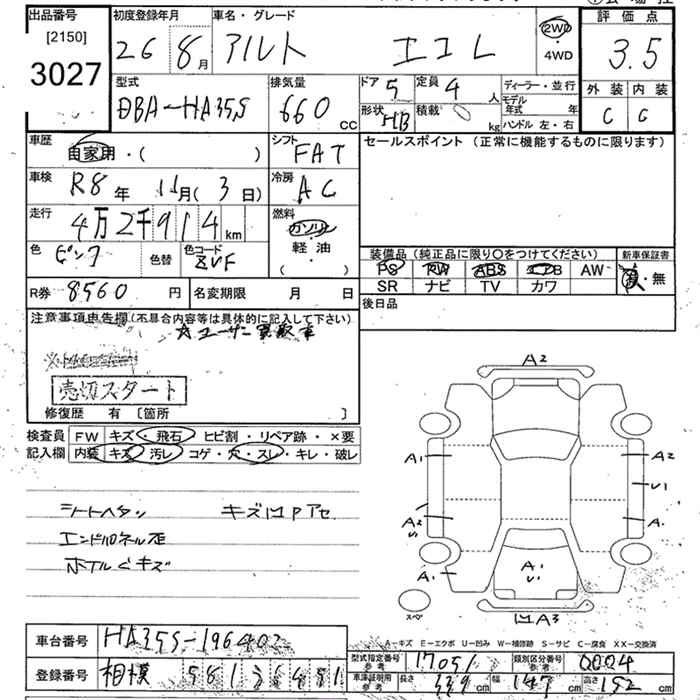 出品番号
[2150]
3027
初度登録年月
26 8月
車名・グレード
アルト エコL
2WD
・
4WD
評価点
3.5
外装 内装
C C
型式
DBA-HA35S
排気量
660 CC
ドア 5
形状 HB
定員 4 人
積載 kg
ディーラー・並行
モデル年式 年
ハンドル 左・右
車歴
自家用・( )
シフト
FAT
セールスポイント (正常に機能するものに限ります)
車検
R8年 11月(3日)
冷房
AC
走行
4万2千914km
燃料
ガソリン
軽・油
( )
色
ピンク
色替
色コード
ZVF
装備品 (純正品に限り〇をつけてください)
PS PW ABS エアB AW
SR ナビ TV カワ
新車保証書
有・無
R券 8560 円
名変期限 月 日
後日品
注意事項申告欄(不具合内容等は具体的に記入して下さい)
☆ユーザー買取車
売切スタート
修復歴 有 〔箇所 〕
検査員
記入欄
FW キズ・飛石・ヒビ割・リペア跡・×要
内装 キズ・汚レ・コゲ・穴・スレ・キレ・破レ
シートヘタリ キズ凹Pアセ
エンドパネル歪
ホイルCキズ
A2
A1
A2
U1
A2
S
A1
A1
A1
U1
スペア
凹A3
A-キズ E-エクボ U-凹み W-補修跡 S-サビ C-腐食 XX-交換済
車台番号
HA35S-196402
登録番号
相模 581
型式指定番号
参考
17051
類別区分番号
参考
0004
車庫証明用
参考
長さ 339 cm
幅 147 cm
高さ 152 cm